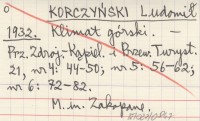 o
KORCZYŃSKI Ludomił
1932. Klimat górski. —
Prz. Zdroj.-Kąpiel. i Przew. Turyst.
21, nr 4: 44-50; nr 5: 56-62;
nr 6: 72-82.
M. in. Zakopane.